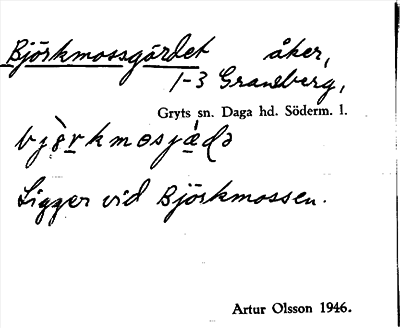 Björkmossgärdet åker,
1-3 Granberg,
Gryts sn. Daga hd. Söderm. l.
Ligger vid Björkmossen.
Artur Olsson 1946.